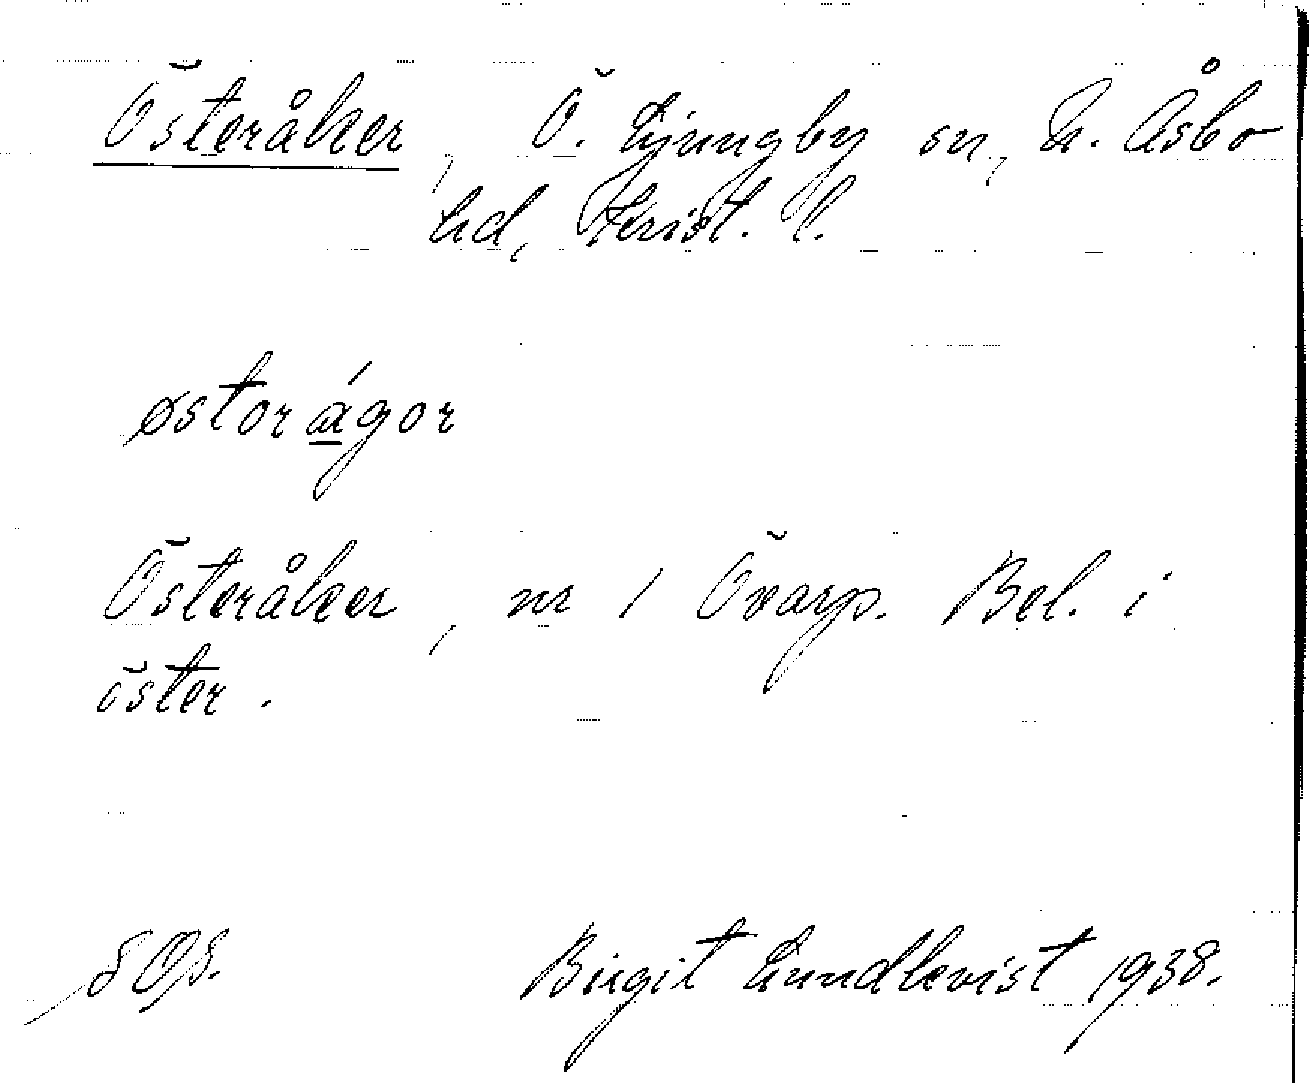 Österåker, Ö. Ljungby sn, N. Åsbo
hd, Krist. l.
østorágor
Österåker, nr 1 Öxarp. Bel. i
öster.
Birgit Lundkvist 1938.